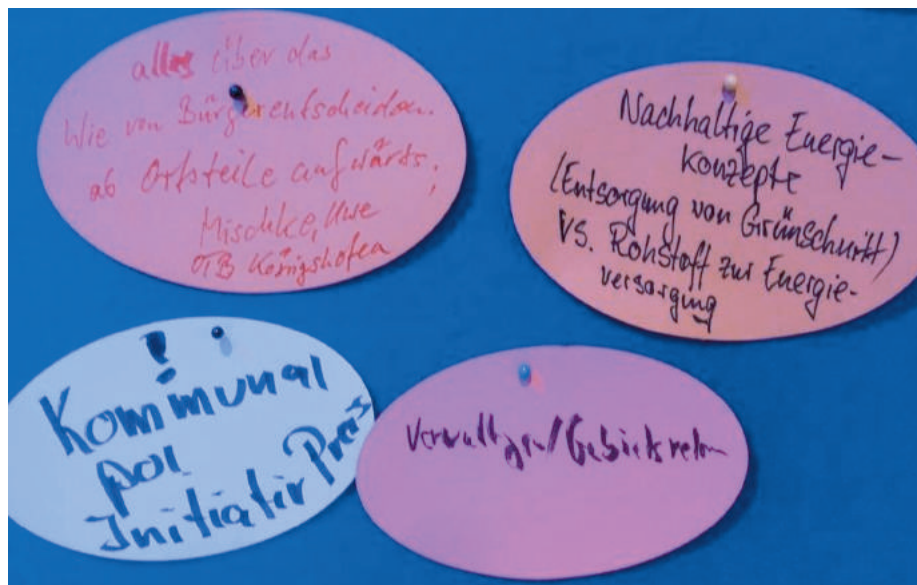 alles über das
Wie von Bürgerentscheiden.
ab Ortsteile aufwärts,
Mischke, Uwe
OTB Königshofen
Nachhaltige Energie-
konzepte
(Entsorgung von Grünschnitt)
VS. Rohstoff zur Energie-
versorgung
!
Kommunal
pol
Initiativ Preis